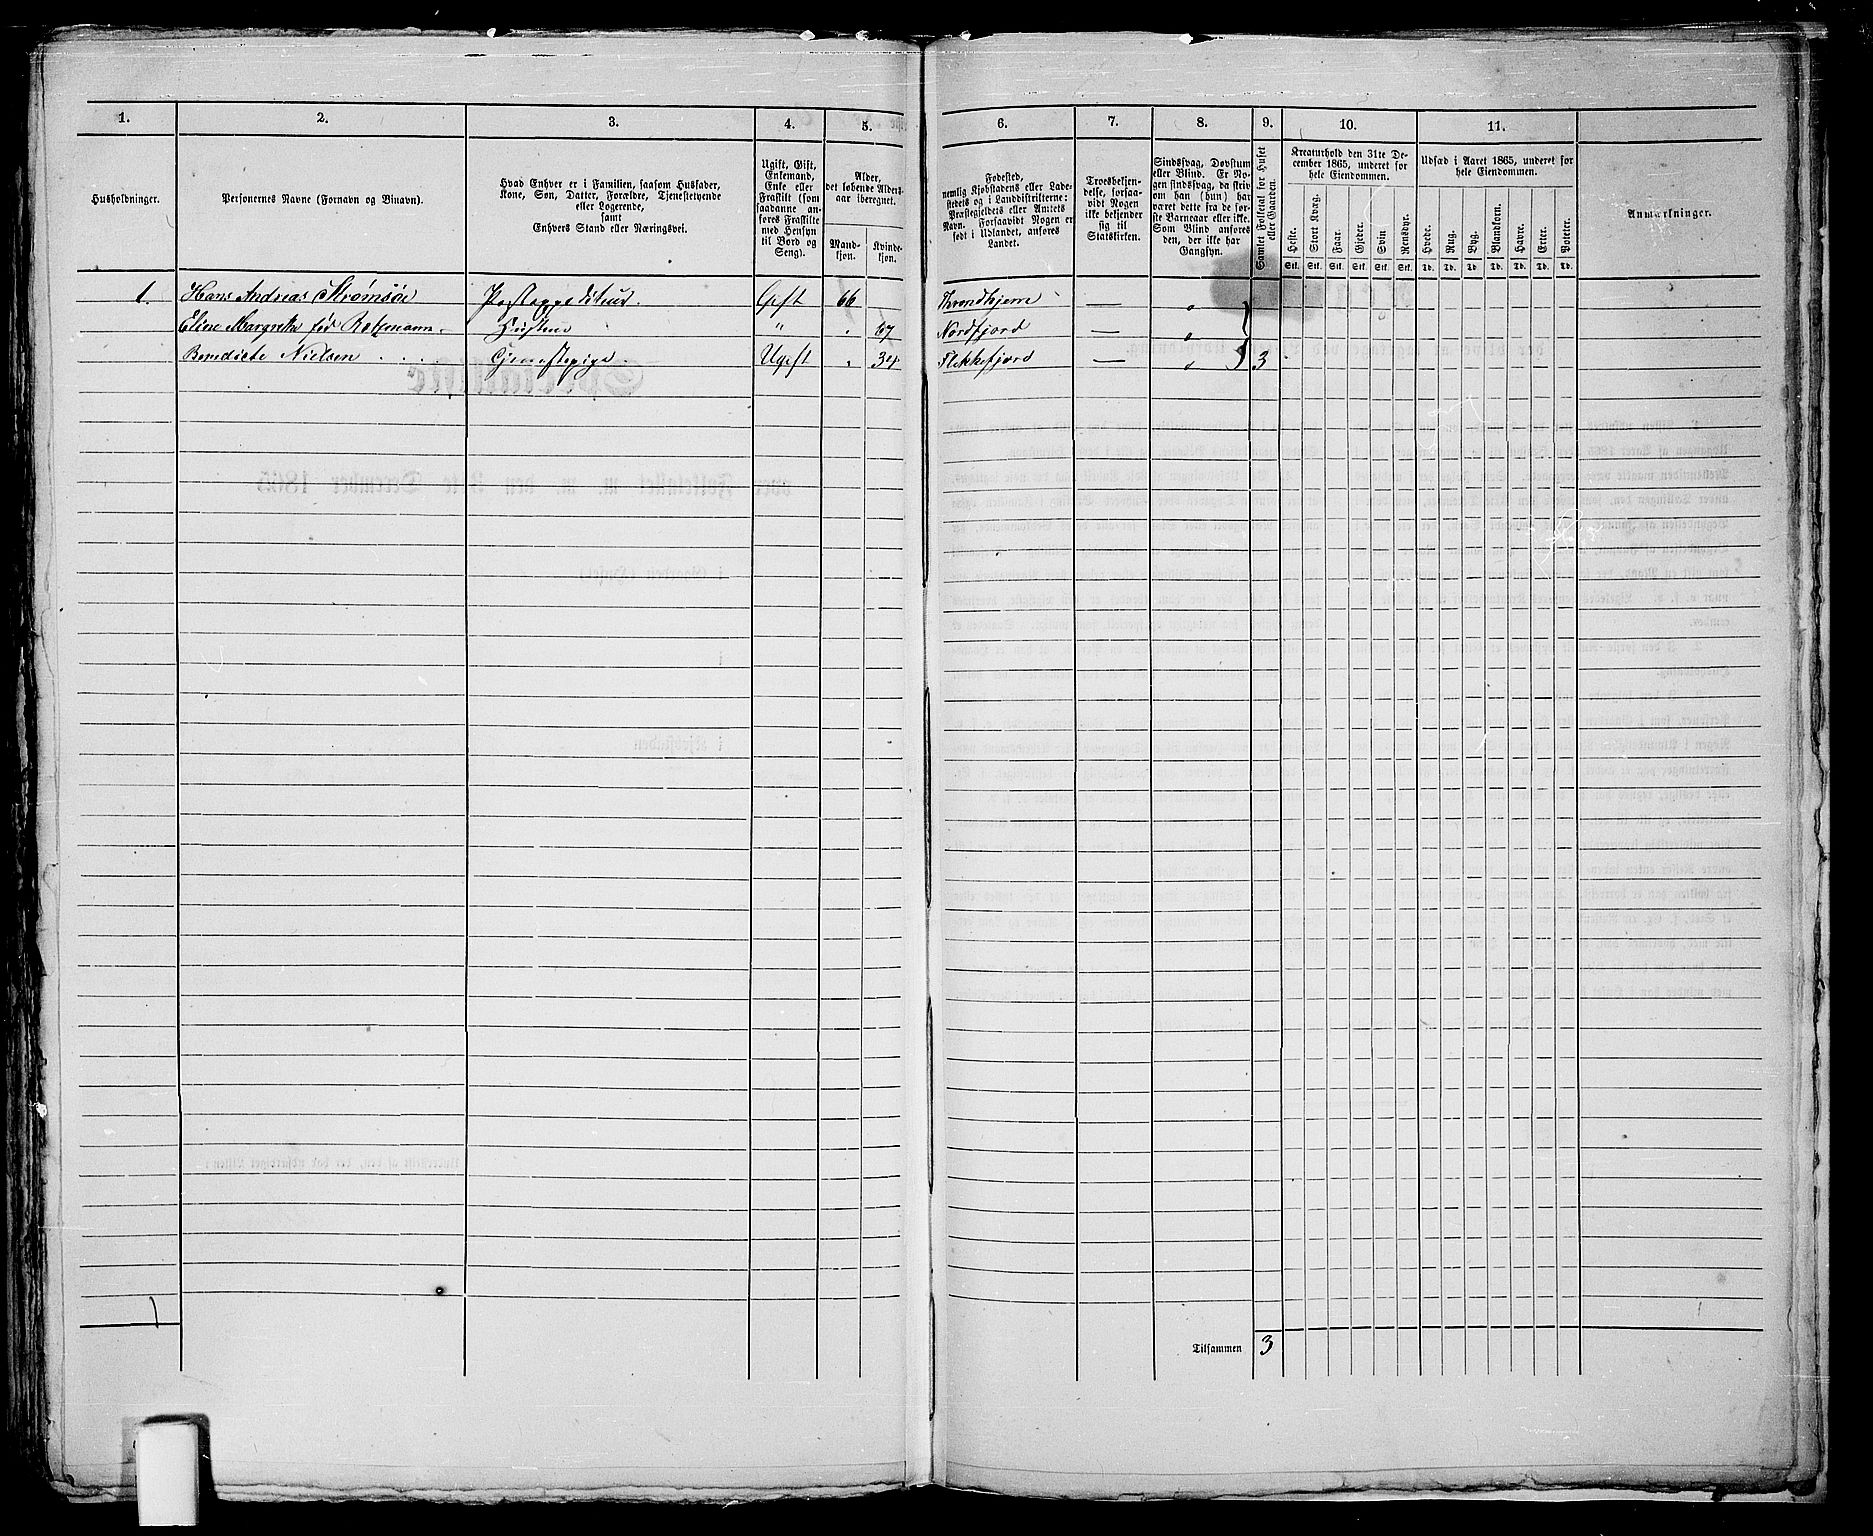 1. 2. 3. 4. 5. 6. 7. 8. 9. 10. 11.
Husholdninger.
Personernes Navne (Fornavn og Binavn).
Hvad Enhver er i Familien, saasom Husfader,
Kone, Søn, Datter, Forældre, Tjenestetyende
eller Logerende,
samt
Enhvers Stand eller Næringsvei.
Ugift, Gift,
Enkemand,
Enke eller
Fraskilt (som
saadanne an-
føres Fraskilte
med Hensyn
til Bord og
Seng).
Alder,
det løbende Alders-
aar iberegnet.
Mand-
kjøn.
Kvinde-
kjøn.
Fødested,
nemlig Kjøbstadens eller Lade-
stedets og i Landdistrikterne:
Præstegjeldets eller Amtets
Navn. Forsaavidt Nogen er
født i Udlandet, anføres
Landet.
Troesbekjen-
delse, forsaa-
vidt Nogen
ikke bekjender
sig til
Statskirken.
Sindssvag, Døvstum
eller Blind. Er No-
gen sindssvag, da skriv
om han (hun) har
været dette fra de før-
ste Barneaar eller ikke.
Som Blind anføres
den, der ikke har
Gangsyn.
Samlet Folketal for Huset
eller Gaarden.
Kreaturhold den 31te De-
cember 1865, underet for
hele Eiendommen.
Heste. Stort Kvæg. Faar. Gjeder. Svin Rensdyr.
Stk. Stk. Stk. Stk. Stk. Stk.
Udsæd i Aaret 1865, underet for
hele Eiendommen.
Hvede. Rug. Byg. Blandkorn. Havre. Erter. Poteter.
Td. Td. Td. Td. Td. Td. Td.
Anmærkninger.
1. Hans Andreas Strømsøe Postexpediteur. Gift 66 Throndhjem — „
Eline Margrethe fød Rotzmann Hustru „ „ 67 Nordfjord — „
Benedicte Nielsen . . . . Tjenestepige Ugift „ 34 Flekkefjord — „ 3
1
Tilsammen 3